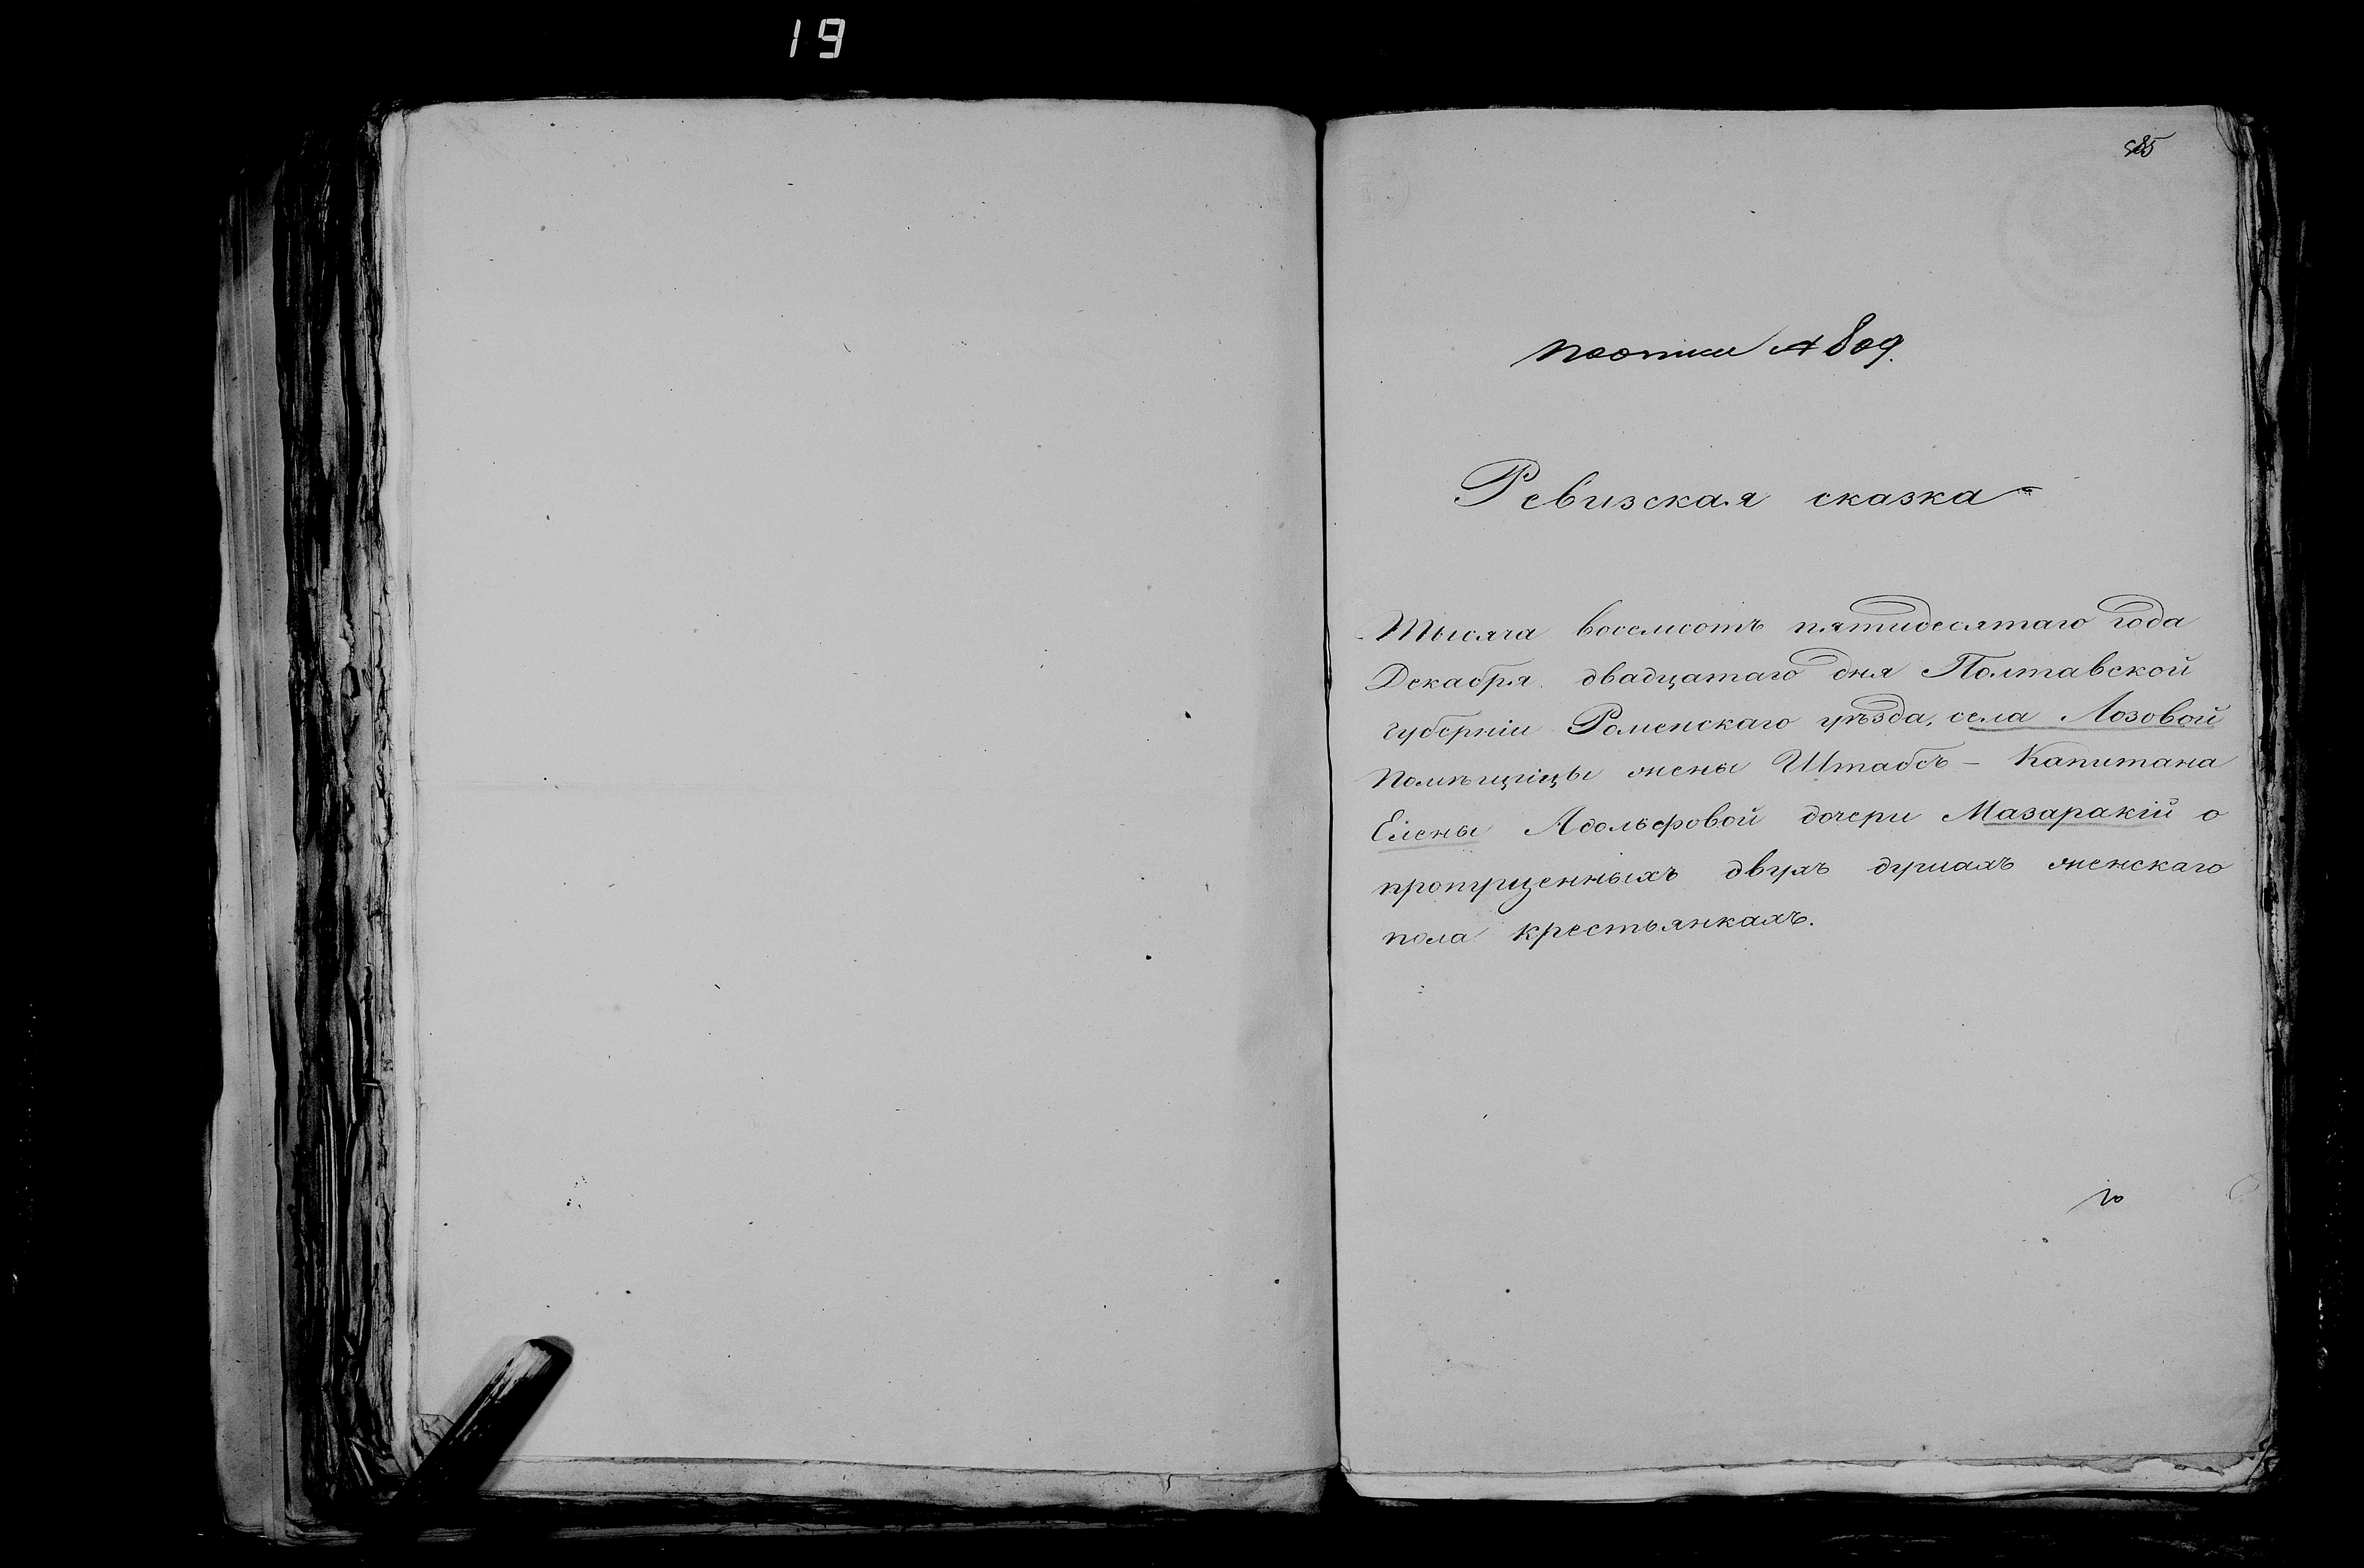 19
585
по описи № 809.
Ревизская сказка
Тысяча восемсотъ пятидесятаго года
Декабря двадцатаго дня Полтавской
губерніи Роменскаго уѣзда, села Лозовой
Помѣщицы жены Штабсъ - Капитана
Елены Адольфовой дочери Мазаракій о
пропущенныхъ двухъ душахъ женскаго
пола крестьянкахъ.